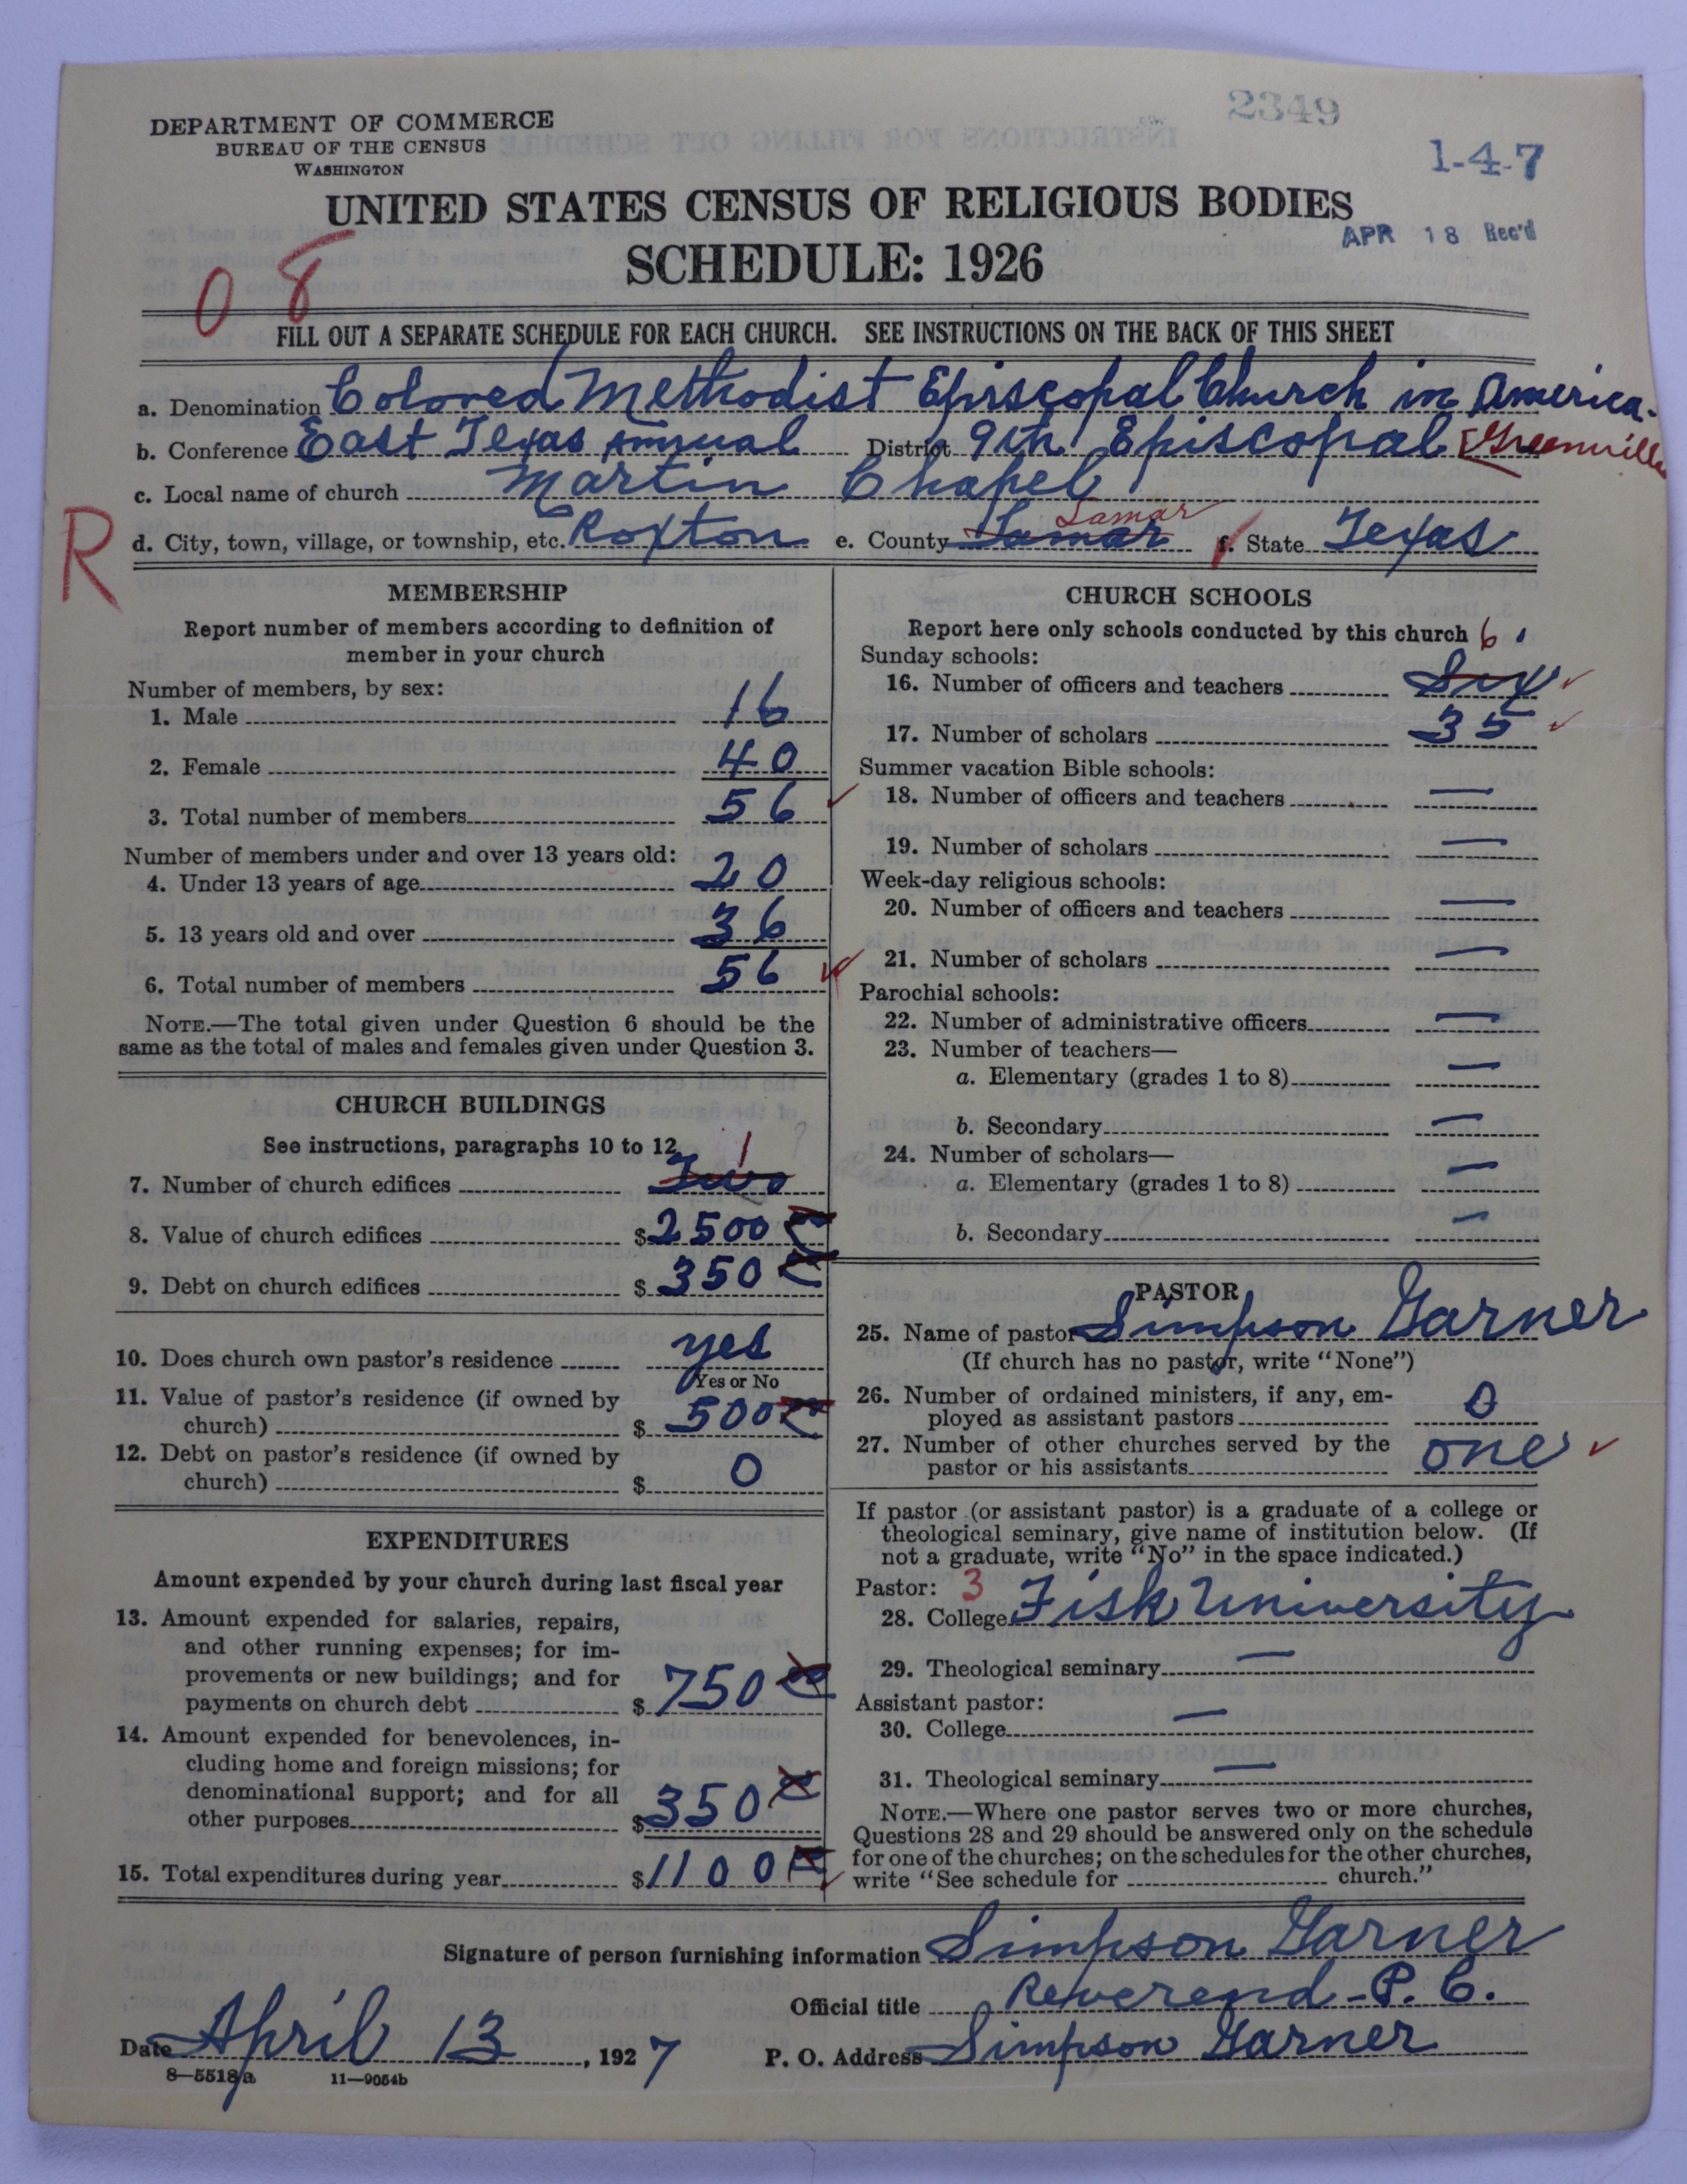 2349
DEPARTMENT OF COMMERCE
BUREAU OF THE CENSUS
WASHINGTON
1-4-7
UNITED STATES CENSUS OF RELIGIOUS BODIES
APR 18 Rec'd
SCHEDULE: 1926
08
FILL OUT A SEPARATE SCHEDULE FOR EACH CHURCH. SEE INSTRUCTIONS ON THE BACK OF THIS SHEET
a. Denomination Colored Methodist Episcopal Church in America.
b. Conference East Texas Annual District 9th Episcopal [Greenville
c. Local name of church Martin Chapel
R
d. City, town, village, or township, etc. Roxton e. County Lamar Lamar f. State Texas
MEMBERSHIP
Report number of members according to definition of
member in your church
Number of members, by sex:
1. Male 16
2. Female 40
3. Total number of members 56
Number of members under and over 13 years old:
4. Under 13 years of age 20
5. 13 years old and over 36
6. Total number of members 56
NOTE.—The total given under Question 6 should be the
same as the total of males and females given under Question 3.
CHURCH BUILDINGS
See instructions, paragraphs 10 to 12
7. Number of church edifices Two 1
8. Value of church edifices $2500
9. Debt on church edifices $350
10. Does church own pastor's residence yes
Yes or No
11. Value of pastor's residence (if owned by
church) $500
12. Debt on pastor's residence (if owned by
church) $0
EXPENDITURES
Amount expended by your church during last fiscal year
13. Amount expended for salaries, repairs,
and other running expenses; for im-
provements or new buildings; and for
payments on church debt $750
14. Amount expended for benevolences, in-
cluding home and foreign missions; for
denominational support; and for all
other purposes $350
15. Total expenditures during year $1100
CHURCH SCHOOLS
Report here only schools conducted by this church
6
Sunday schools:
16. Number of officers and teachers Six
17. Number of scholars 35
Summer vacation Bible schools:
18. Number of officers and teachers —
19. Number of scholars —
Week-day religious schools:
20. Number of officers and teachers —
21. Number of scholars —
Parochial schools:
22. Number of administrative officers —
23. Number of teachers—
a. Elementary (grades 1 to 8) —
b. Secondary —
24. Number of scholars—
a. Elementary (grades 1 to 8) —
b. Secondary —
PASTOR
25. Name of pastor Simpson Garner
(If church has no pastor, write "None")
26. Number of ordained ministers, if any, em-
ployed as assistant pastors 0
27. Number of other churches served by the
pastor or his assistants one
If pastor (or assistant pastor) is a graduate of a college or
theological seminary, give name of institution below. (If
not a graduate, write "No" in the space indicated.)
Pastor: 3
28. College Fisk University
29. Theological seminary —
Assistant pastor:
30. College —
31. Theological seminary —
NOTE.—Where one pastor serves two or more churches,
Questions 28 and 29 should be answered only on the schedule
for one of the churches; on the schedules for the other churches,
write "See schedule for church."
Signature of person furnishing information Simpson Garner
Official title Reverend - P. C.
Date April 13, 1927 P. O. Address Simpson Garner
8—5518a 11—9054b